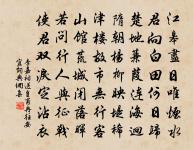 江皋盡日唯煙水
君向白田何日歸
楚地蒹葭連海迥
隋朝楊柳映堤稀
津樓故市無行客
山館荒城閉落暉
若問行人與征戰
使君雙淚定沾衣
李嘉祐送皇甫冉往安
宜